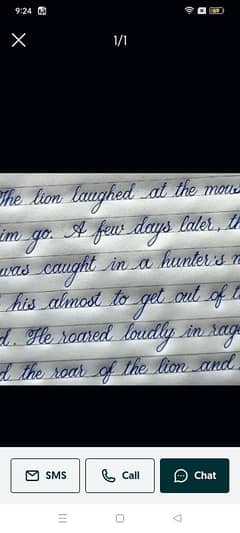 9:24
1/1
The lion laughed at the mous
im go. A few days later, th
was caught in a hunter's n
his almost to get out of t
d. He roared loudly in rage
d the roar of the lion and
SMS
Call
Chat